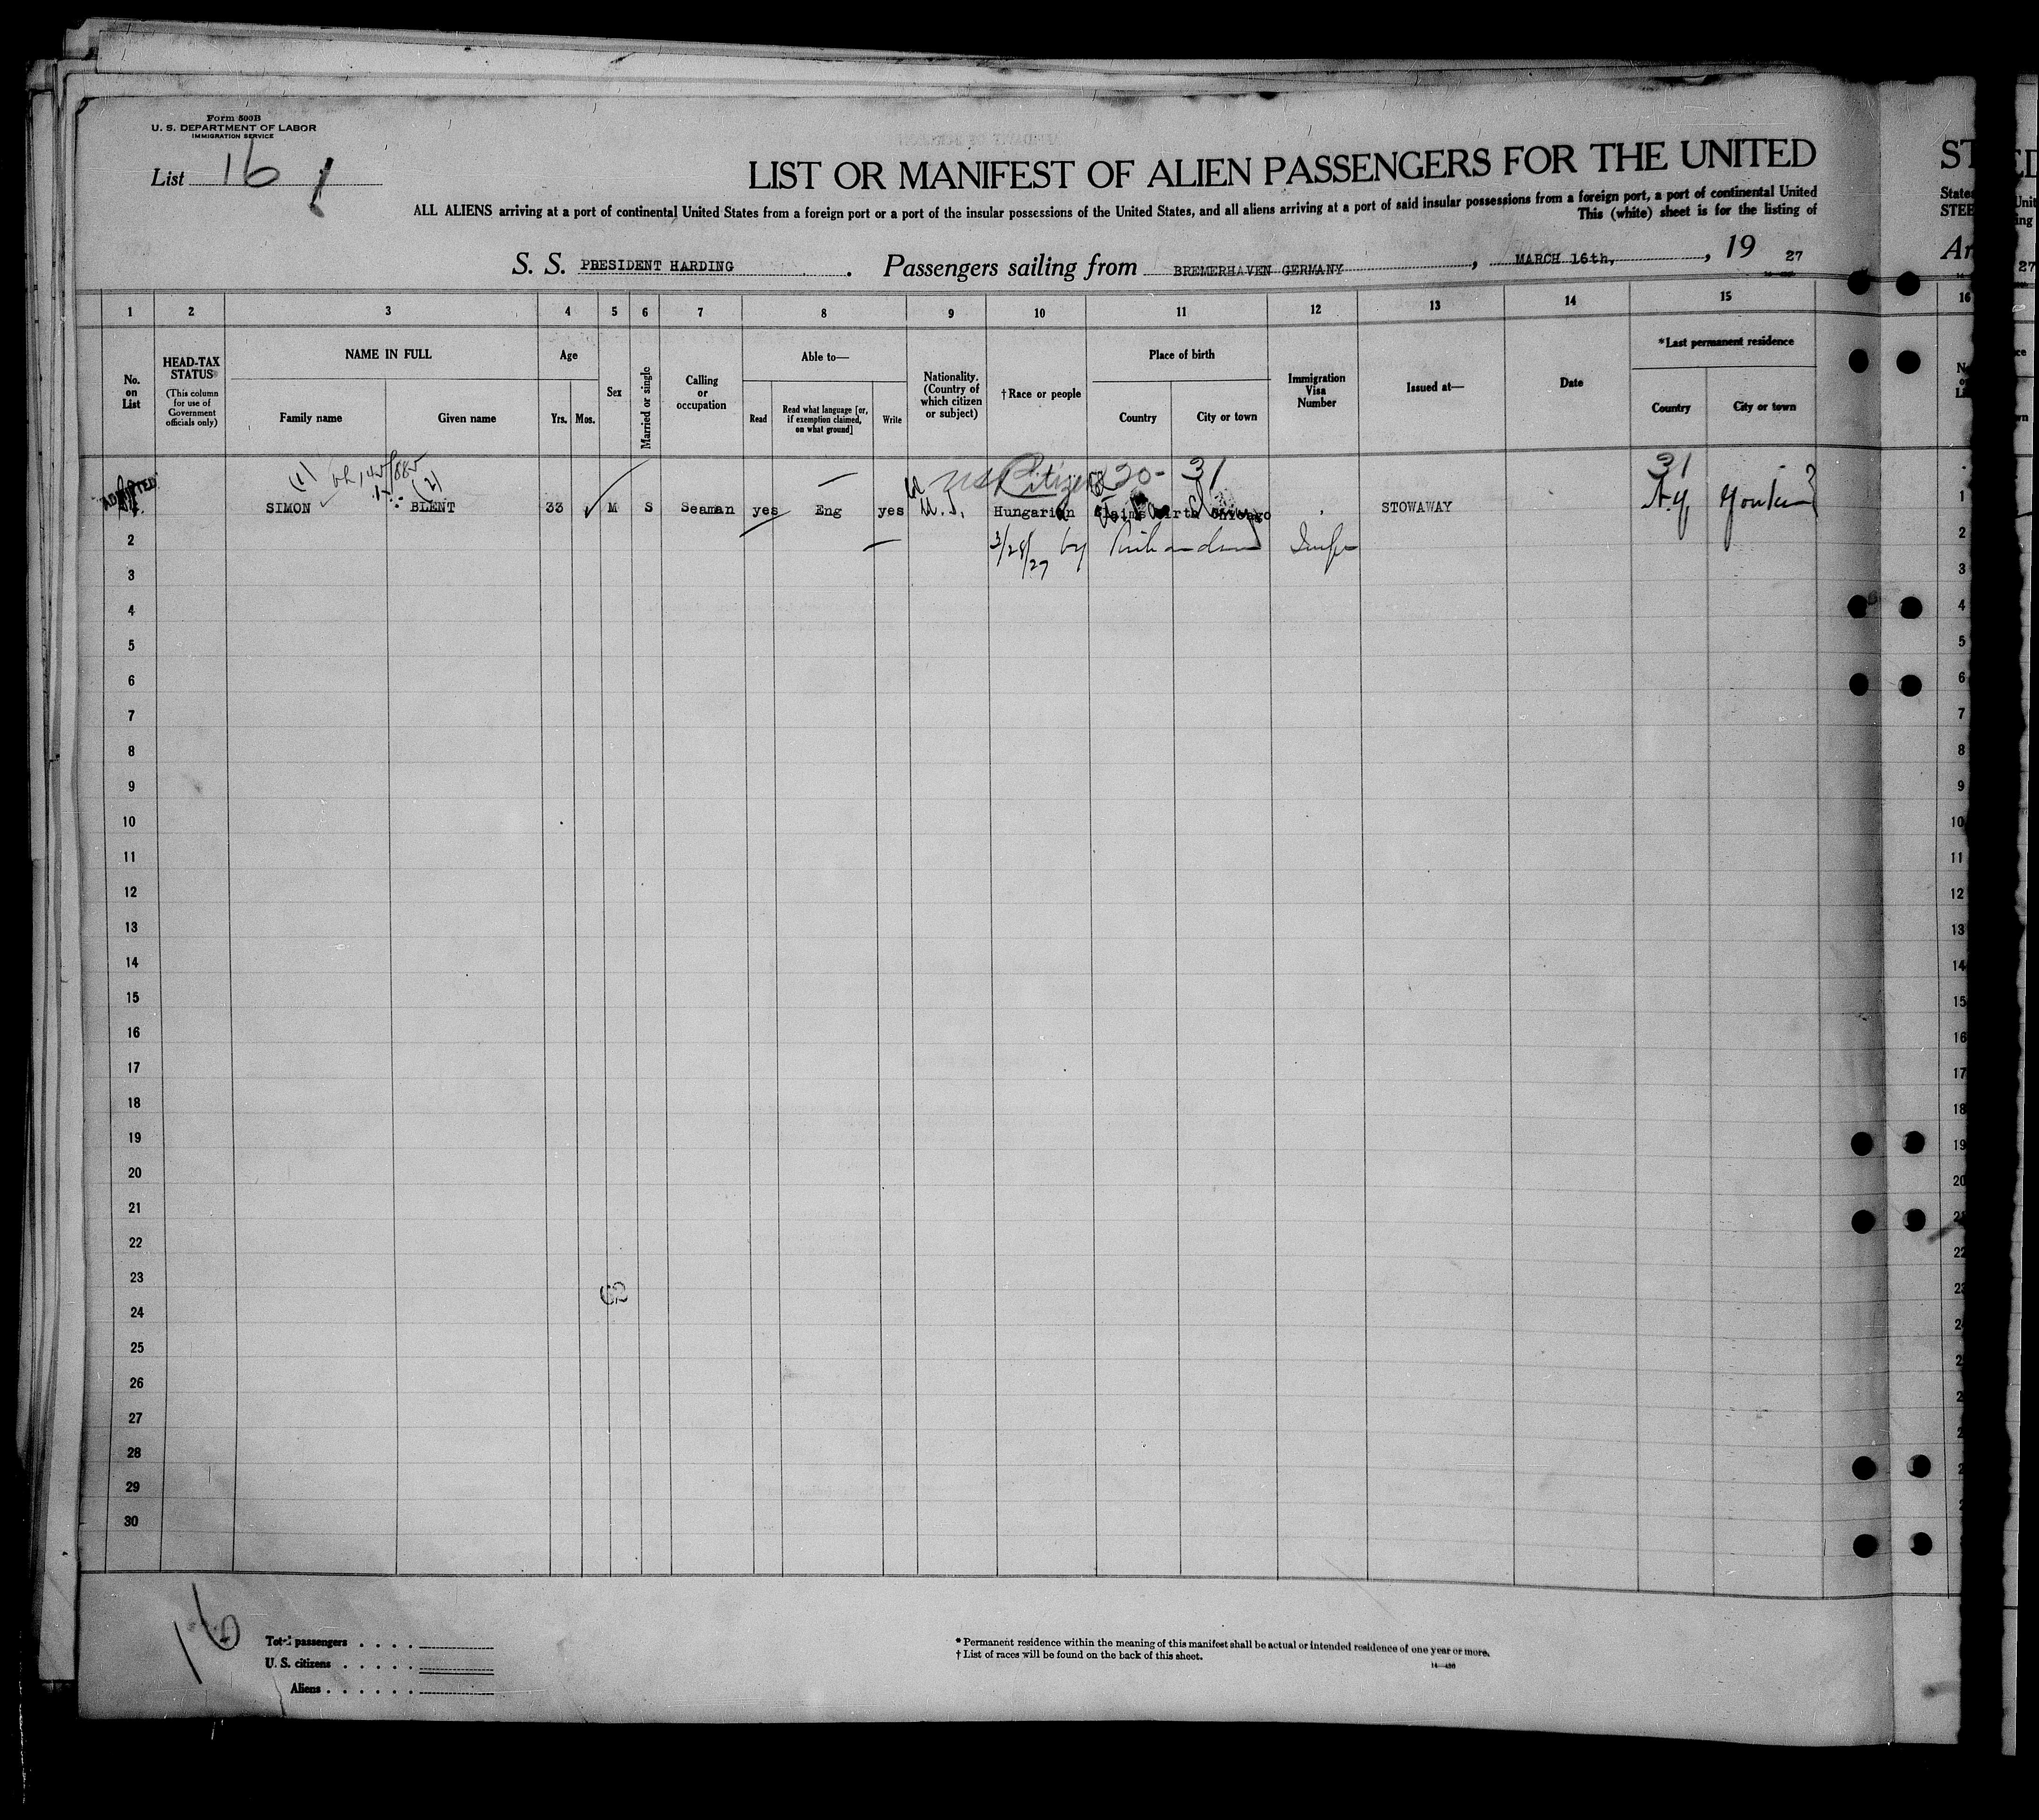 Form 500B
U. S. DEPARTMENT OF LABOR
IMMIGRATION SERVICE
List 16 1
LIST OR MANIFEST OF ALIEN PASSENGERS FOR THE UNITED
ALL ALIENS arriving at a port of continental United States from a foreign port or a port of the insular possessions of the United States, and all aliens arriving at a port of said insular possessions from a foreign port, a port of continental United
This (white) sheet is for the listing of
S. S. PRESIDENT HARDING. Passengers sailing from BREMERHAVEN GERMANY, MARCH 16th, , 19 27
1 2 3 4 5 6 7 8 9 10 11 12 13 14 15 16
No. on List
HEAD-TAX STATUS (This column for use of Government officials only)
NAME IN FULL
Family name Given name
Age
Yrs. Mos.
Sex
Married or single
Calling or occupation
Able to—
Read
Read what language [or, if exemption claimed, on what ground]
Write
Nationality. (Country of which citizen or subject)
†Race or people
Place of birth
Country City or town
Immigration Visa Number
Issued at—
Date
*Last permanent residence
Country City or town
ADMITTED
(1) (2)
US Citizen 30- 31 31
1 SIMON BLENT 33 M S Seaman yes Eng yes U.S. Hungarian Claims birth Chicago STOWAWAY N.Y. 1
2 3/28/27 by 2
3 3
4 4
5 5
6 6
7 7
8 8
9 9
10 10
11 11
12 12
13 13
14 14
15 15
16 16
17 17
18 18
19 19
20 20
21 21
22 22
23
24
25
26
27
28
29
30
62
16
Total passengers . . . .
U. S. citizens . . . . .
Aliens . . . . . .
* Permanent residence within the meaning of this manifest shall be actual or intended residence of one year or more.
† List of races will be found on the back of this sheet.
ST
States
STEE
Ar
27